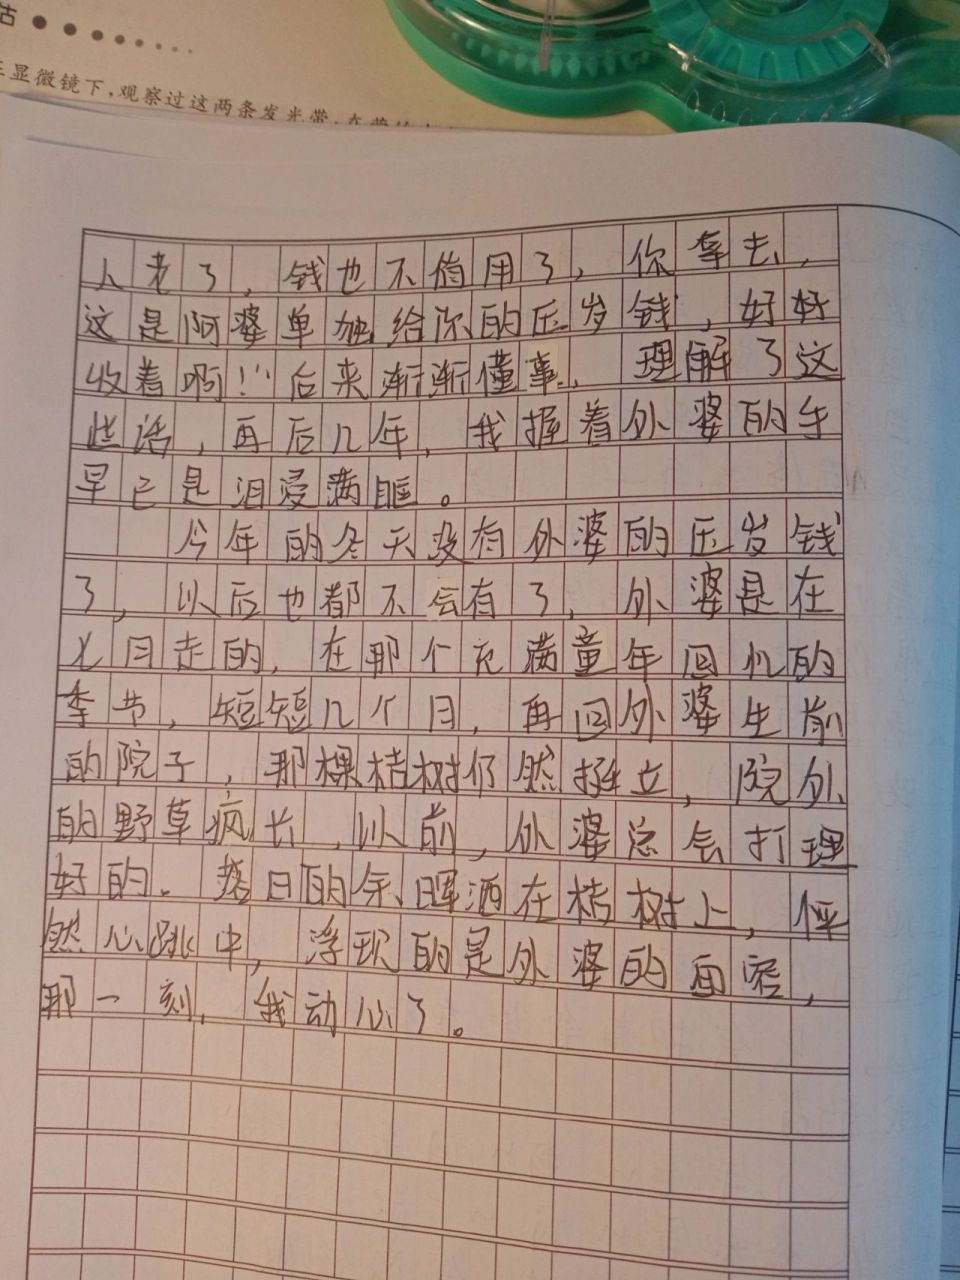 估
显微镜下，观察过这两条发光带，在萤
人老了，钱也不值用了，你拿去，
这是阿婆单独给你的压岁钱，好好
收着啊！”后来渐渐懂事，理解了这
些话，再后几年，我握着外婆的手
早已是泪浸满眶。
今年的冬天没有外婆的压岁钱
了，以后也都不会有了，外婆是在
七月走的，在那个充满童年回忆的
季节，短短几个月，再回外婆生前
的院子，那棵桔树仍然挺立，院外
的野草疯长，以前，外婆总会打理
好的。落日的余晖洒在桔树上，怦
然心跳中，浮现的是外婆的面容，
那一刻，我动心了。